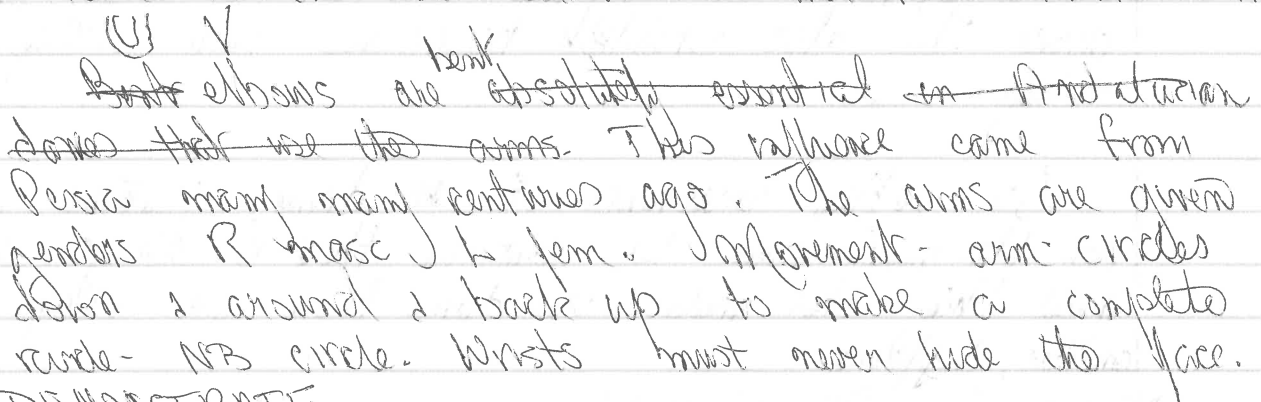 (U) V
bent
~~Bent~~ elbows are ~~absolutely essential in Andalucian~~
~~dances that use the arms.~~ This influence came from
Persia many many centuries ago. The arms are given
genders R masc L fem. Movement - arm circles
down & around & back up to make a complete
circle - NB circle. Wrists must never hide the face.
DEMONSTRATE